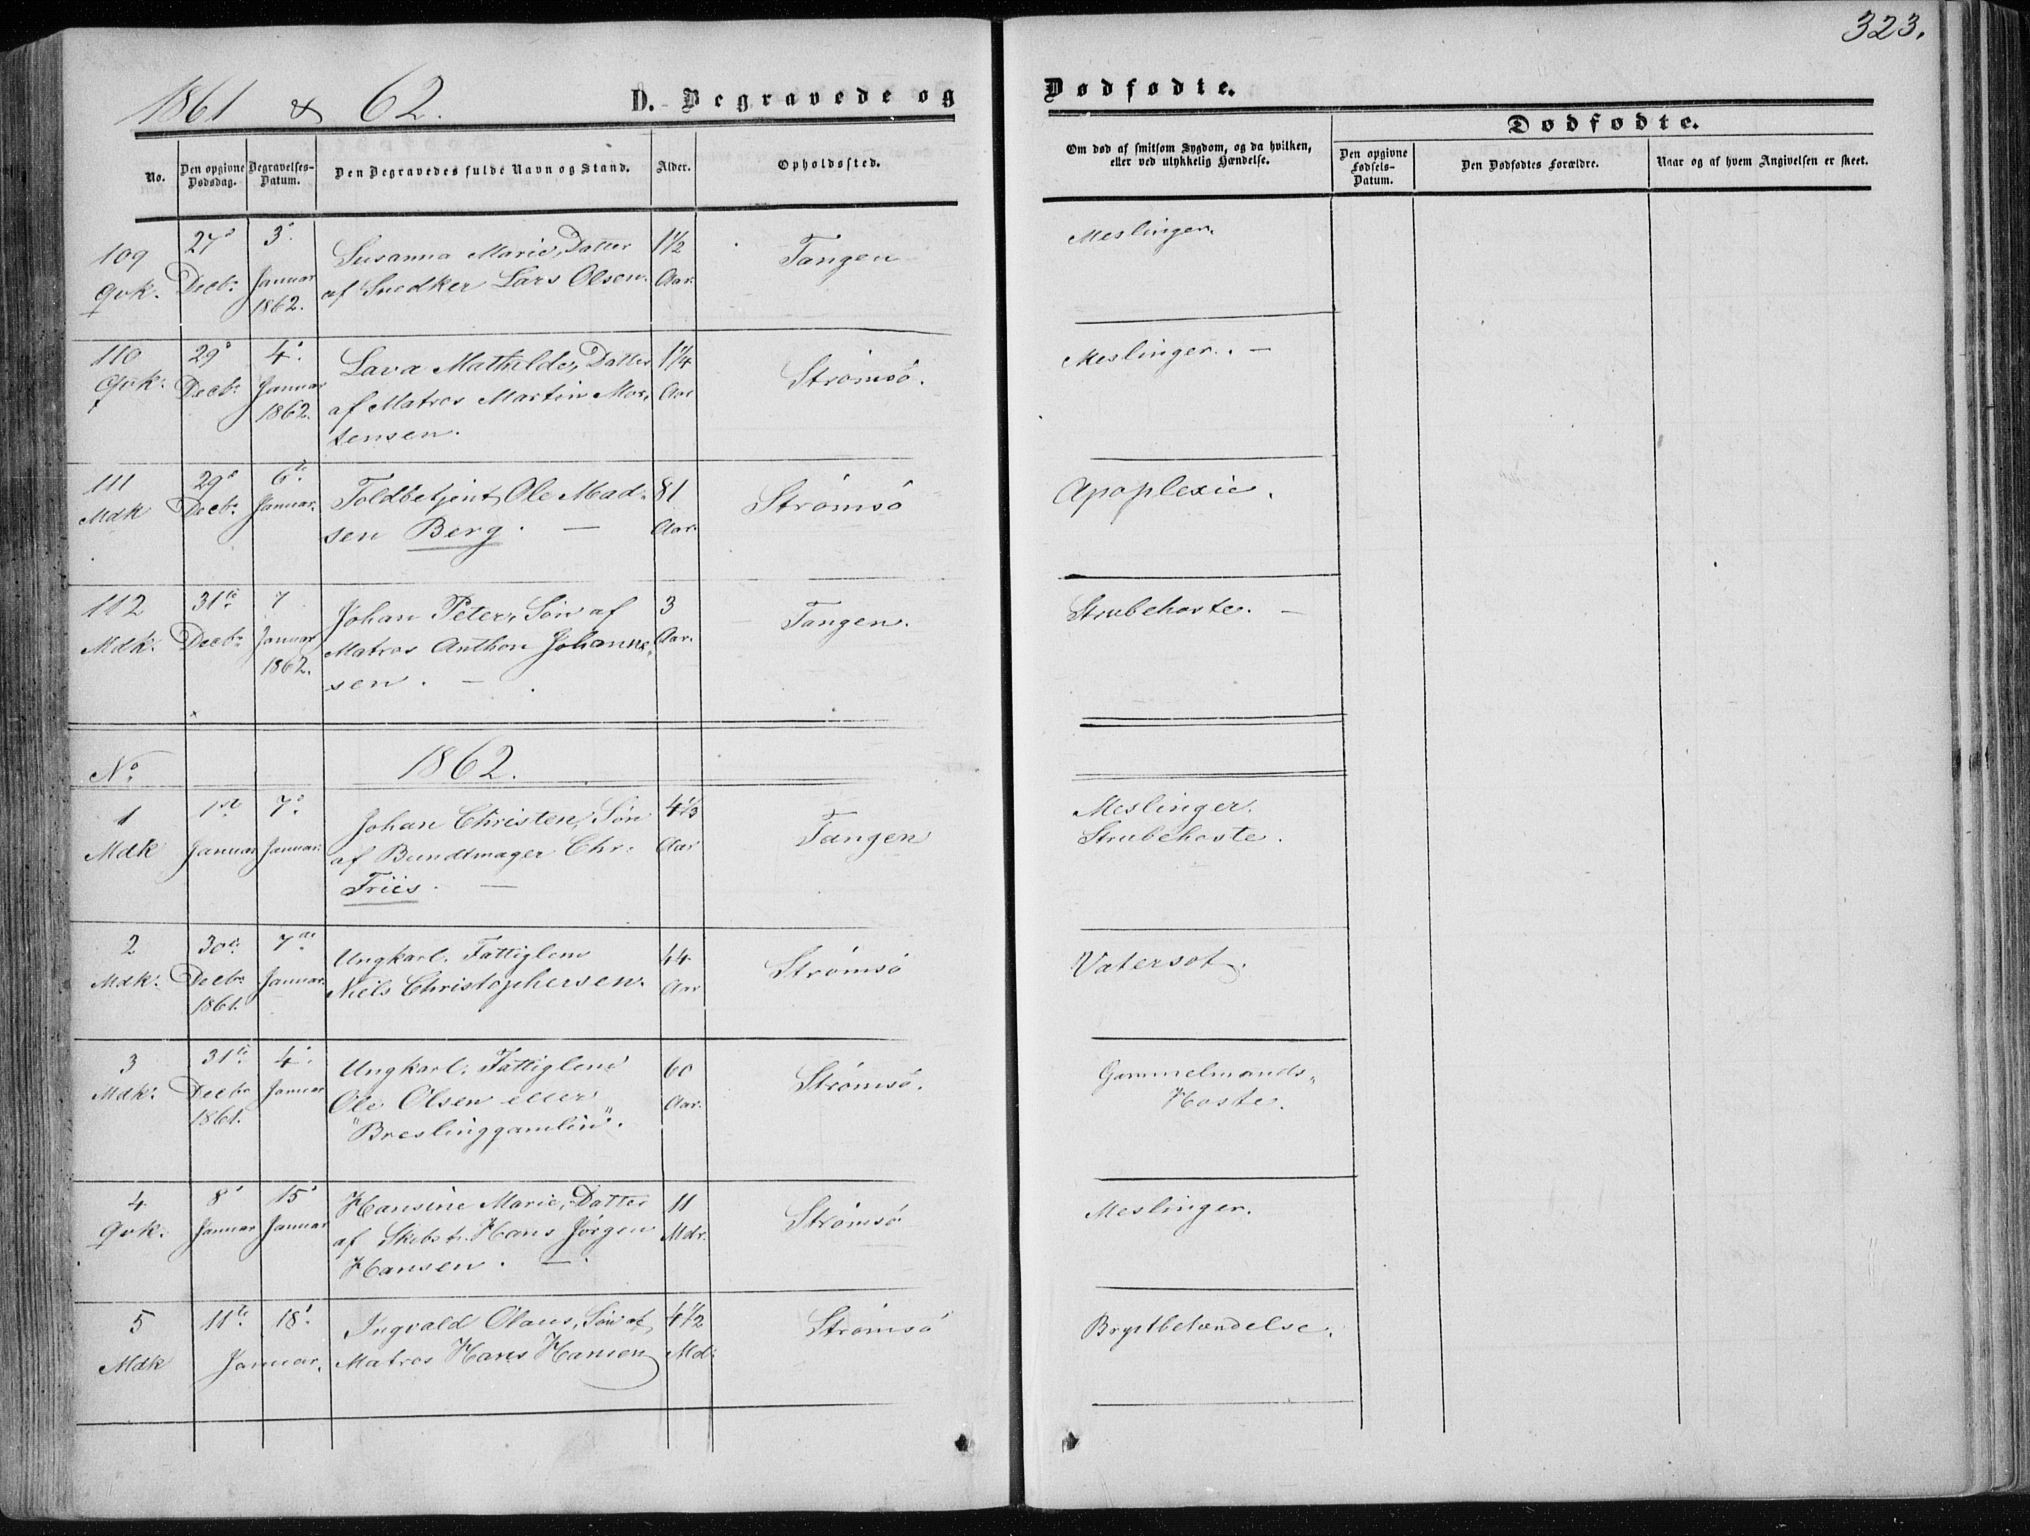 323.
1861 & 62.
D. Begravede og
Dødfødte.
Dødfødte.
No.
Den opgivne Dødsdag.
Begravelses-Datum.
Den Begravedes fulde Navn og Stand.
Alder.
Opholdssted.
Om død af smitsom Sygdom, og da hvilken,
eller ved ulykkelig Hændelse.
Den opgivne Fødsels-Datum.
Den Dødfødtes Forældre.
Naar og af hvem Angivelsen er skeet.
109 27 3 Susanna Marie, Datter 1½ Tangen Meslinger.
Qvk. Decbr Januar af Snedker Lars Olsen. Aar.
1862.
110 29 4 Lava Mathilde, Datter 1¼ Strømsö. Meslinger. —
Qvk. Decbr Januar af Matros Martin Mor- Aar
1862. tensen.
111 29 6te Toldbetjent, Ole Mad- 81 Strømsö Apoplexie.
Mdk Decbr Januar. sen Berg. — Aar.
112 31te 7 Johan Peter, Sön af 3 Tangen. Strubehoste. —
Mdk. Decbr Januar Matros Anthon Johanne- Aar.
1862. sen. —
No 1862.
1 1ste 7 Johan Christen, Sön 4⅓ Tangen Meslinger.
Mdk Januar Januar. af Bundtmager Chr. Aar Strubehoste.
Friis. —
2 30te 7de Ungkarl. Fattiglem 44 Strømsö Vatersot.
Mdk. Decbr Januar. Niels Christophersen. Aar
1861.
3 31te 4 Ungkarl. Fattiglem 60 Strømsö. Gammelmands-
Mdk. Decbr Januar Ole Olsen eller Aar. Hoste.
1861. "Breslinggamlin".
4 8 15 Hansine Marie, Datter 11 Strømsö Meslinger.
Qvk. Januar Januar af Skibst. Hans Jörgen Mdr.
Hansen. —
5 11te 18 Ingvald Olaus, Sön af 4½ Strømsö Brystbetændelse.
Mdk Januar. Matros Hans Hansen Md.